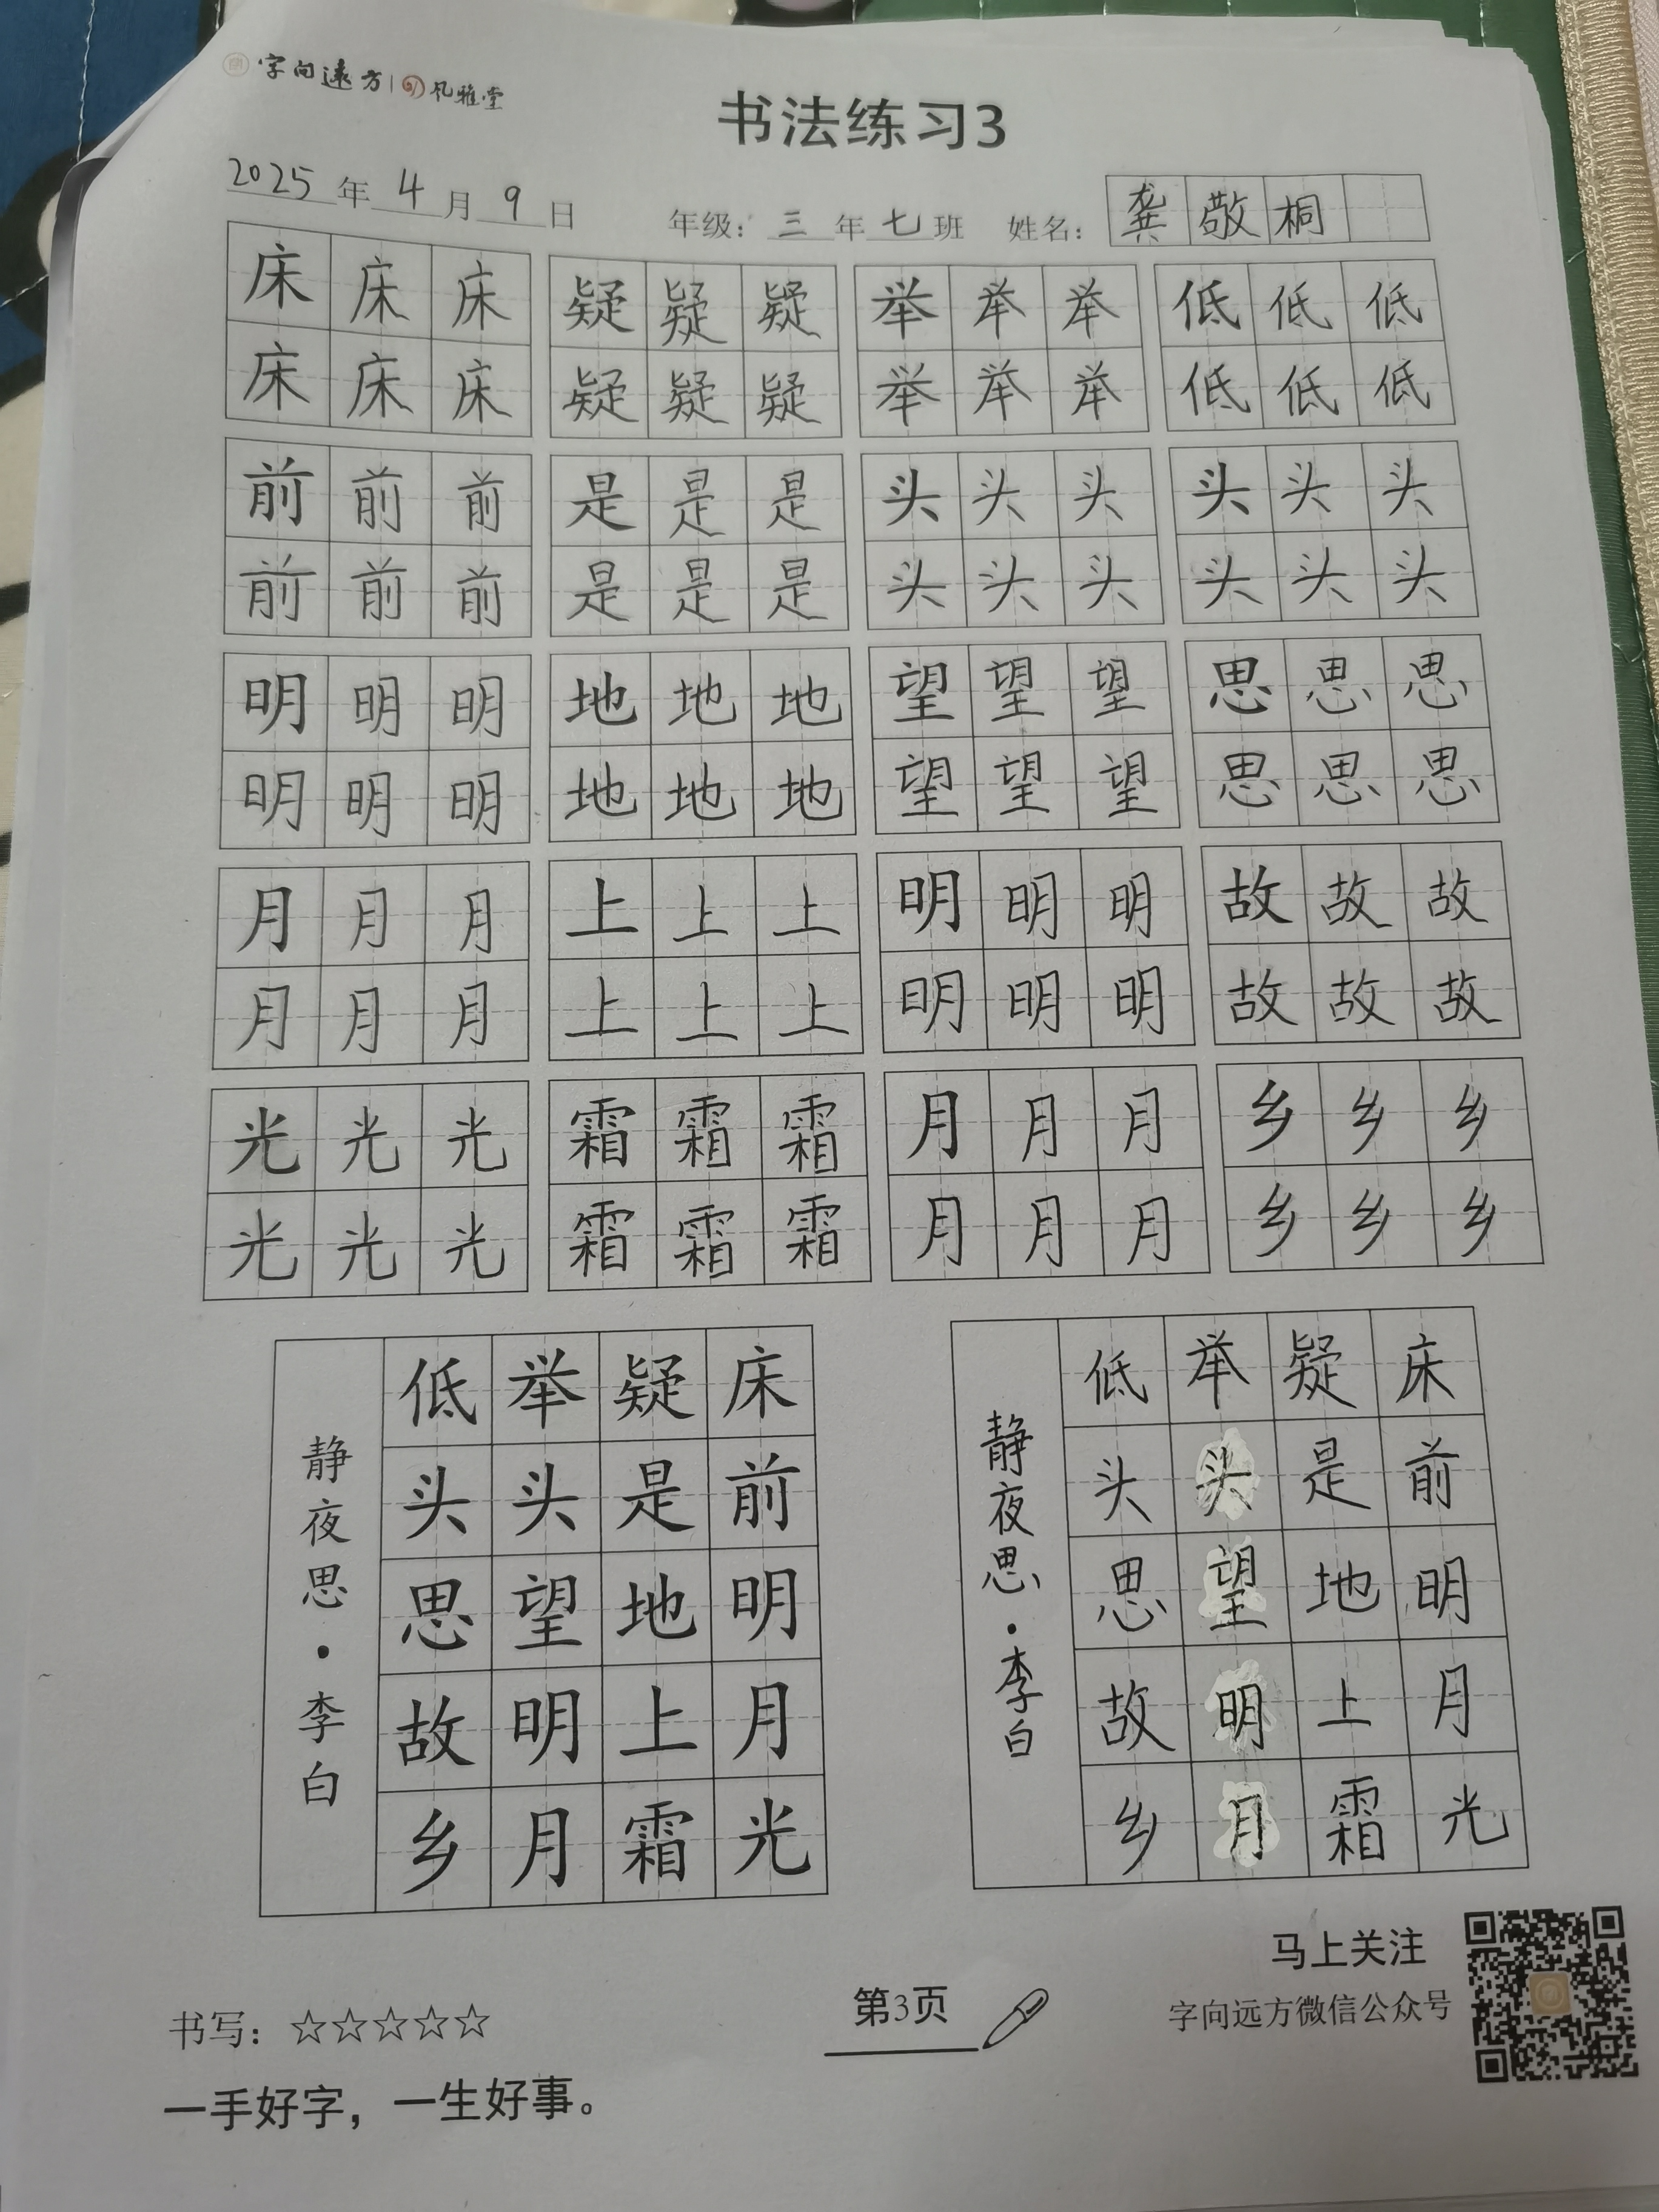 字向远方 | 凡雅堂
书法练习3
2025年4月9日 年级：三年七班 姓名：龚敬桐
床床床 疑疑疑 举举举 低低低
床床床 疑疑疑 举举举 低低低
前前前 是是是 头头头 头头头
前前前 是是是 头头头 头头头
明明明 地地地 望望望 思思思
明明明 地地地 望望望 思思思
月月月 上上上 明明明 故故故
月月月 上上上 明明明 故故故
光光光 霜霜霜 月月月 乡乡乡
光光光 霜霜霜 月月月 乡乡乡
床前明月光
疑是地上霜
举头望明月
低头思故乡
静夜思·李白
床前明月光
疑是地上霜
举头望明月
低头思故乡
静夜思·李白
书写：☆☆☆☆☆
一手好字，一生好事。
第3页
马上关注
字向远方微信公众号